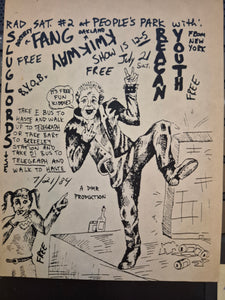 RAD SAT. #2 AT PEOPLE'S PARK WITH:
SLUGLORDS
FANG
OAKLAND
KWIK WAY
REAGAN YOUTH
FROM NEW YORK
FREE
SHOW IS 12-5
July 21 SAT.
FREE
FREE
B.Y.O.B.
IT'S FREE
FUN
KIDDIES!
TAKE E BUS TO
HASTE AND WALK
UP TO TELEGRAPH
OR TAKE BART
TO BERKELEY
STATION AND
BUS TO
TELEGRAPH AND
WALK TO HASTE
7/21/84
A DMR
PRODUCTION